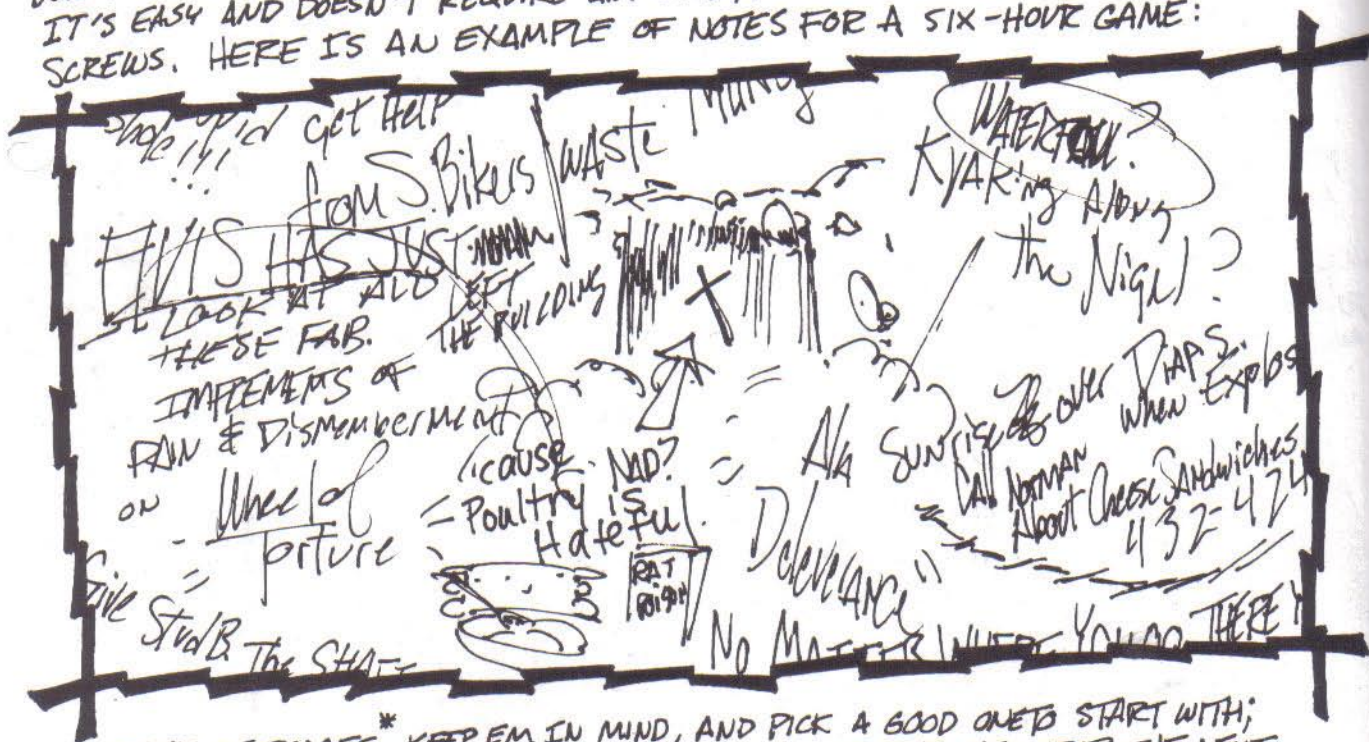 IT'S EASY AND DOESN'T REQUIRE
SCREWS. HERE IS AN EXAMPLE OF NOTES FOR A SIX-HOUR GAME:
get Help
from S. Bikers
waste
Many
WATERFALL?
KYAKing Along
the Nigel?
ELVIS HAS JUST
LEFT
THE BUILDING
LOOK AT ALL
THESE FAB.
IMPLEMENTS OF
PAIN & DISMEMBERMENT
ON Wheel of
Torture
'cause NAD?
Poultry is
Hateful
RAT
POISON
X
AKA
Deleverance
Sunrise over DIAPS.
when Explos
Call NORMAN
About Cheese Sandwiches
432-424
Give
StudB. The SHAFT
No MATTER WHERE YOU GO THERE Y
* KEEP EM IN MIND, AND PICK A GOOD ONE TO START WITH;